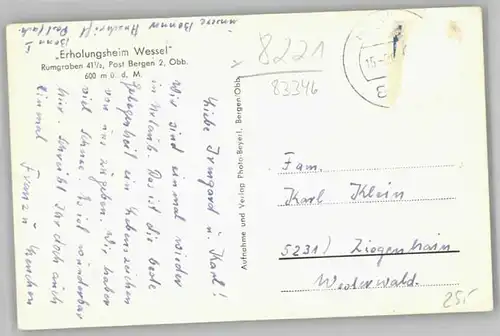 „Erholungsheim Wessel"
Rumgraben 41½, Post Bergen 2, Obb.
600 m ü. d. M.
unsere Bonner Anschrift
Bonn 1 Postfach
Liebe Irmgard u. Karl!
Wir sind einmal wieder
in Urlaub. Das ist die beste
Gelegenheit ein Lebenszeichen
von uns zu geben. Wir haben
viel Schnee. Es ist wunderbar
hier. Schreibt Ihr doch auch
einmal
Franz u.
Aufnahme und Verlag Photo-Beyerl, Bergen/Obb.
8221
83346
15.-
Fam.
Karl Klein
5231/ Ziegenhain
Westerwald.
25,-